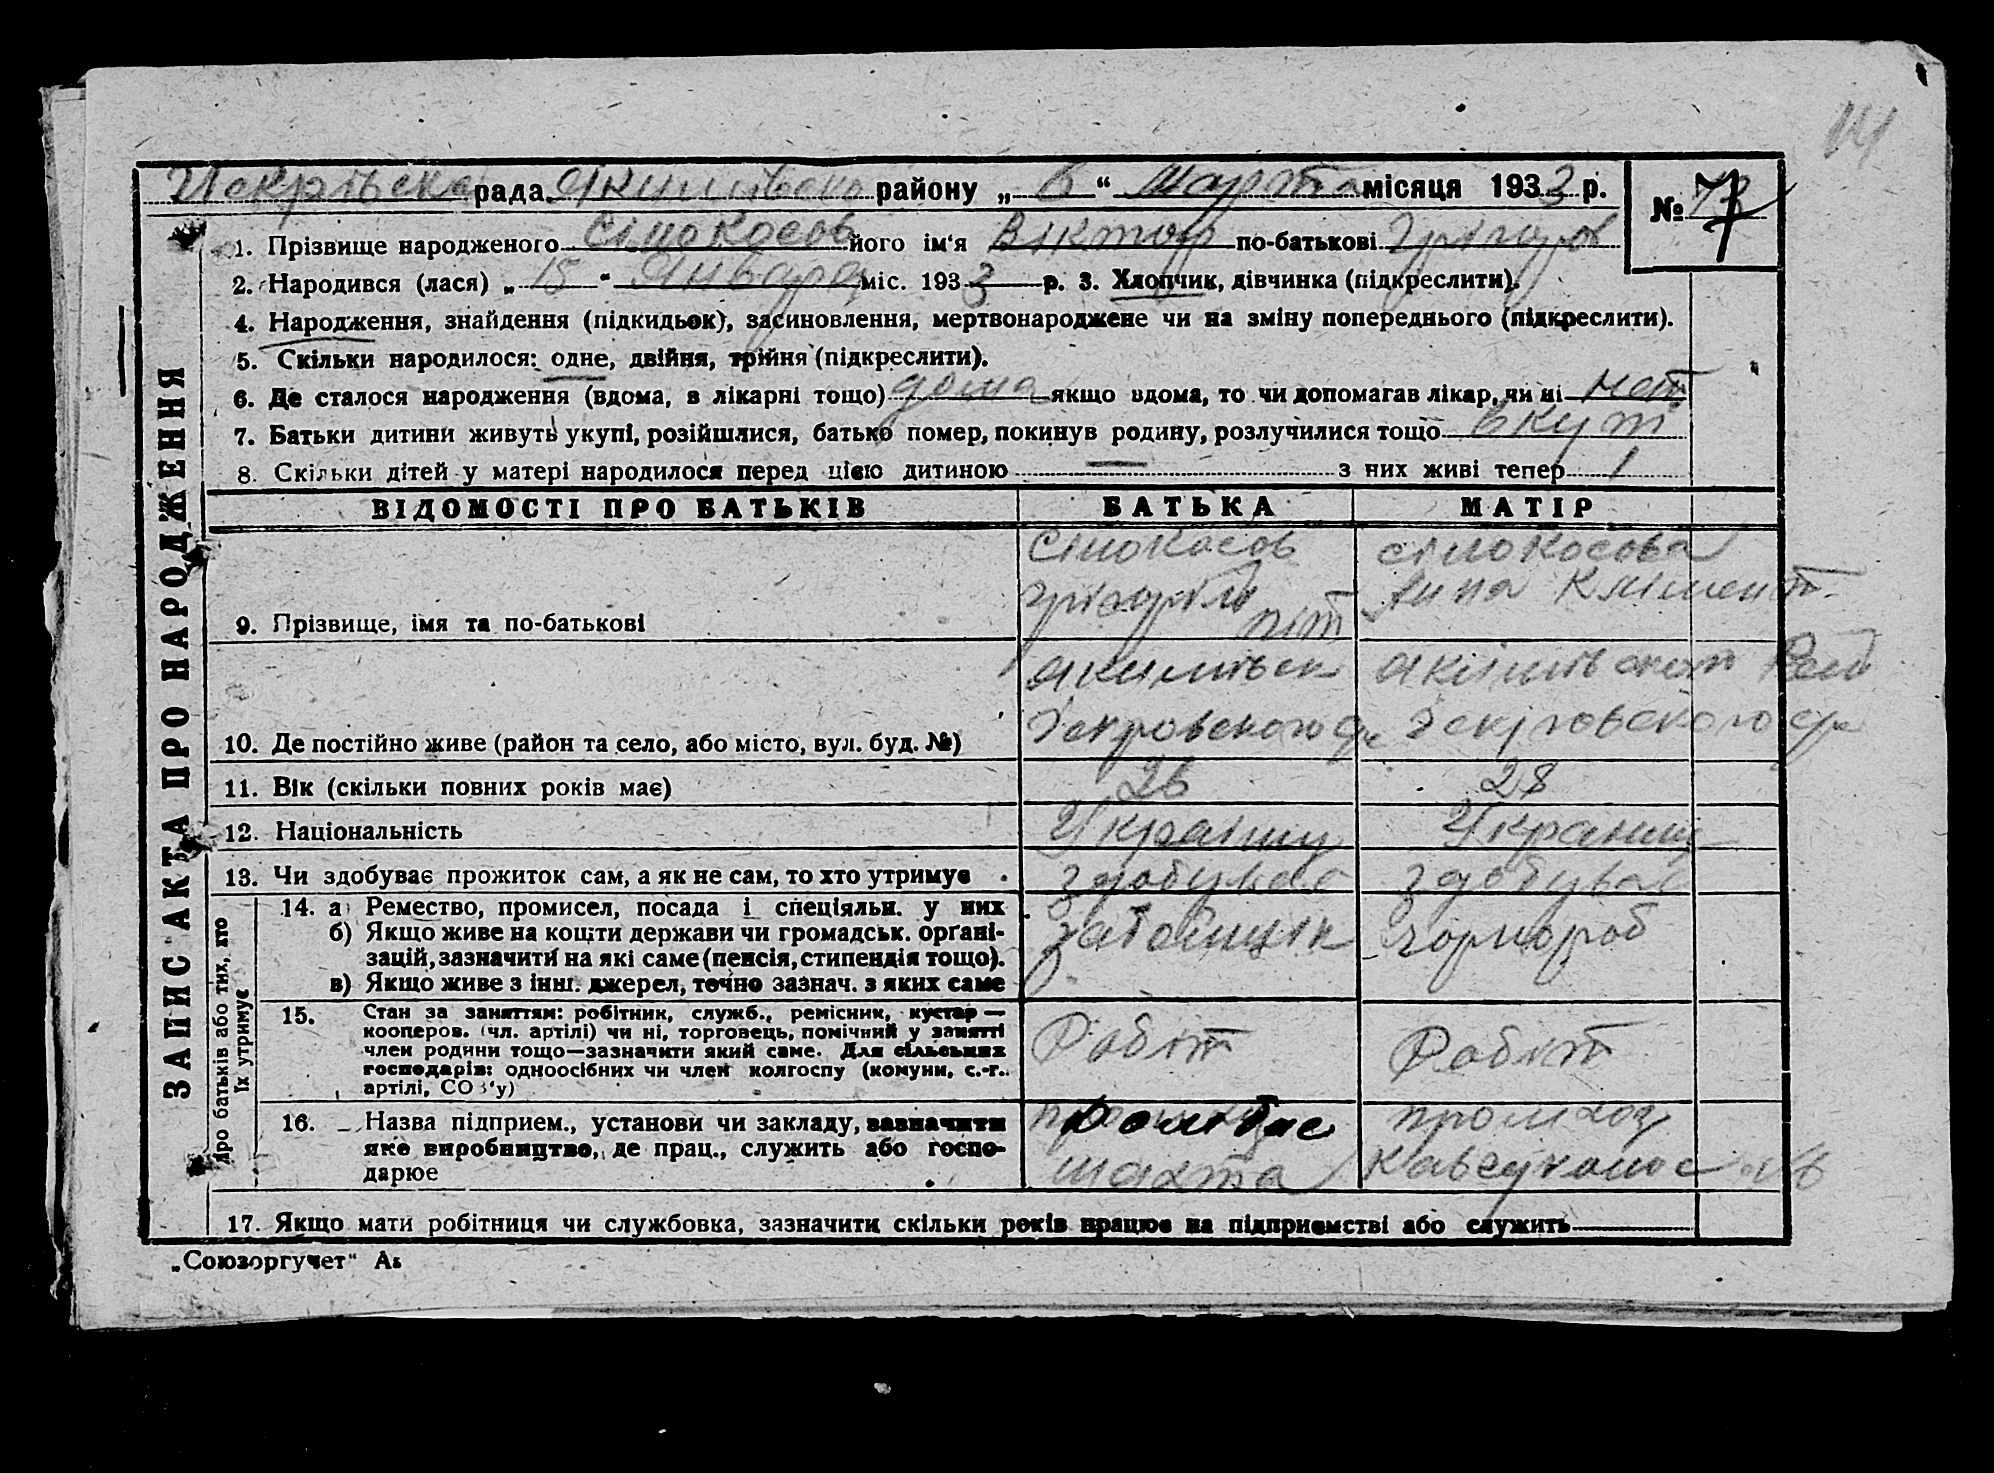 141
рада Якимівсько району „ 6 “ Марта місяця 1933 р.
№ 7
1. Прізвище народженого Сінокосов його ім'я Віктор по-батькові Грігоров
2. Народився (лася) „ 15 “ Января міс. 1933 р. 3. Хлопчик, дівчинка (підкреслити).
4. Народження, знайдення (підкидьок), засиновлення, мертвонароджене чи на зміну попереднього (підкреслити).
5. Скільки народилося: одне, двійня, трійня (підкреслити).
6. Де сталося народження (вдома, в лікарні тощо) дома якщо вдома, то чи допомагав лікар, чи ні нет
7. Батьки дитини живуть укупі, розійшлися, батько помер, покинув родину, розлучилися тощо вкупі
8. Скільки дітей у матері народилося перед цією дитиною — з них живі тепер 1
ЗАПИС АКТА ПРО НАРОДЖЕННЯ
ВІДОМОСТІ ПРО БАТЬКІВ БАТЬКА МАТІР
9. Прізвище, імя та по-батькові
Сінокосов
Грігорій
Сінокосова
Анна Клімент.
10. Де постійно живе (район та село, або місто, вул. буд. №)
11. Вік (скільки повних років має) 26 28
12. Національність Україну Україну
13. Чи здобуває прожиток сам, а як не сам, то хто утримує здобуває здобуває
про батьків або тих, хто
їх утримує
14. а) Ремество, промисел, посада і спеціяльн. у них
б) Якщо живе на кошти держави чи громадськ. органі-
зацій, зазначити на які саме (пенсія, стипендія тощо).
в) Якщо живе з інш. джерел, точно зазнач. з яких саме
забойщік чорнороб
15. Стан за заняттям: робітник, служб., ремісник, кустар —
кооперов. (чл. артілі) чи ні, торговець, помічний у занятті
член родини тощо—зазначити який саме. Для сільських
господарів: одноосібних чи член колгоспу (комуни, с.-г.
артілі, СОЗ'у)
Робіт Робіт
16. Назва підприєм., установи чи закладу, зазначити
яке виробництво, де прац., служить або госпо-
дарюе
Донбас
шахта
17. Якщо мати робітниця чи службовка, зазначити скільки років працює на підприємстві або служить
„Союзоргучет“